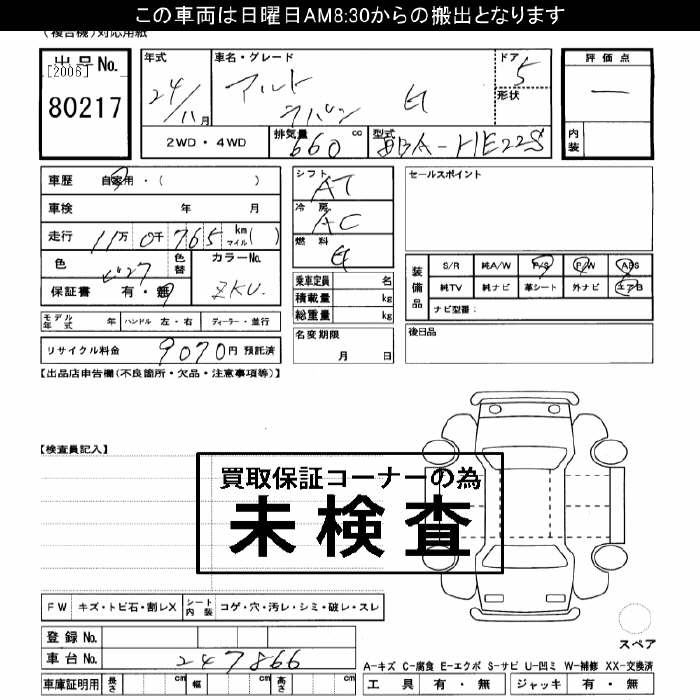 この車両は日曜日AM8:30からの搬出となります
(複合機)対応用紙
出品No.
[2006]
80217
年式
24/11月
車名・グレード
アルト
ラパン
G
ドア
5
形状
評価点
―
内装
2WD・4WD
排気量
660 cc
型式
DBA-HE22S
車歴 自家用・( )
車検 年 月
走行 11万 0千 765 km マイル( )
色
ピンク
色替
カラーNo.
ZKU
保証書 有・無
モデル年式 年 ハンドル 左・右 ディーラー・並行
リサイクル料金 9070円 預託済
シフト
AT
冷房
AC
燃料
G
乗車定員 名
積載量 kg
総重量 kg
名変期限
月 日
セールスポイント
装備品
S/R 純A/W P/S P/W ABS
純TV 純ナビ 革シート 外ナビ エアB
ナビ型番:
後日品
【出品店申告欄(不良箇所・欠品・注意事項等)】
【検査員記入】
買取保証コーナーの為
未検査
FW キズ・トビ石・割レX シート内装 コゲ・穴・汚レ・シミ・破レ・スレ
登録No.
車台No. 247866
車庫証明用 長さ cm 幅 cm 高さ cm
スペア
A-キズ C-腐食 E-エクボ S-サビ U-凹ミ W-補修 XX-交換済
工具 有・無 ジャッキ 有・無